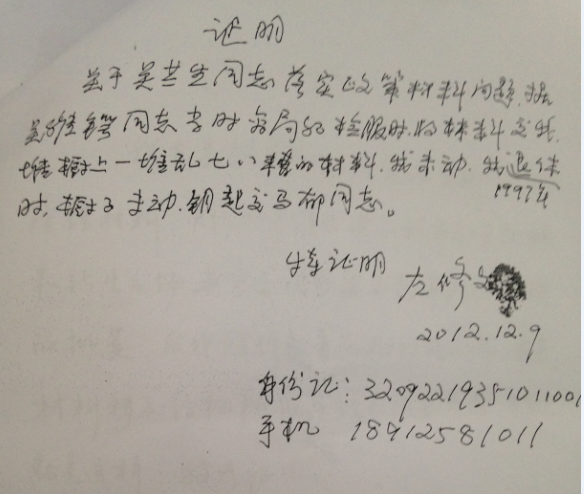 证明
关于吴其生同志落实政策材料问题.据
吴维镑同志当时帮局的检服时.的材料交我.
堆橱上一堆乱七八糟的材料.我未动.我退休
1997年
时.橱子未动.钥起交马郁同志。
特证明
左修文
2012.12.9
身份证：32092219351011001
手机 18912581011